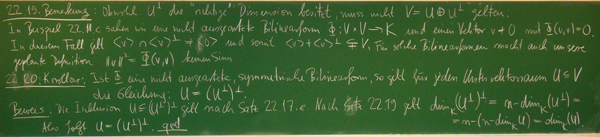 22.19. Bemerkung: Obwohl U⊥ die "richtige" Dimension besitzt, muss nicht V = U ⊕ U⊥ gelten.
In Beispiel 22.11.c sahen wir eine nicht ausgeartete Bilinearform Φ: V×V→K und einen Vektor v≠0 mit Φ(v,v)=0.
In diesem Fall gilt <v> ∩ <v>⊥ ≠ {0} und somit <v>+<v>⊥ ⊊ V. Für solche Bilinearformen macht auch unsere
geplante Definition "‖v‖" = Φ(v,v) keinen Sinn
22.20. Korollar: Ist Φ eine nicht ausgeartete, symmetrische Bilinearform, so gilt für jeden Untervektorraum U ≤ V
die Gleichung: U = (U⊥)⊥.
Beweis: Die Inklusion U ⊆ (U⊥)⊥ gilt nach Satz 22.17.e Nach Satz 22.19 gilt dim_K (U⊥)⊥ = n - dim_K (U⊥) =
Also folgt U = (U⊥)⊥. qed = n-(n-dim_K U) = dim_K (U)